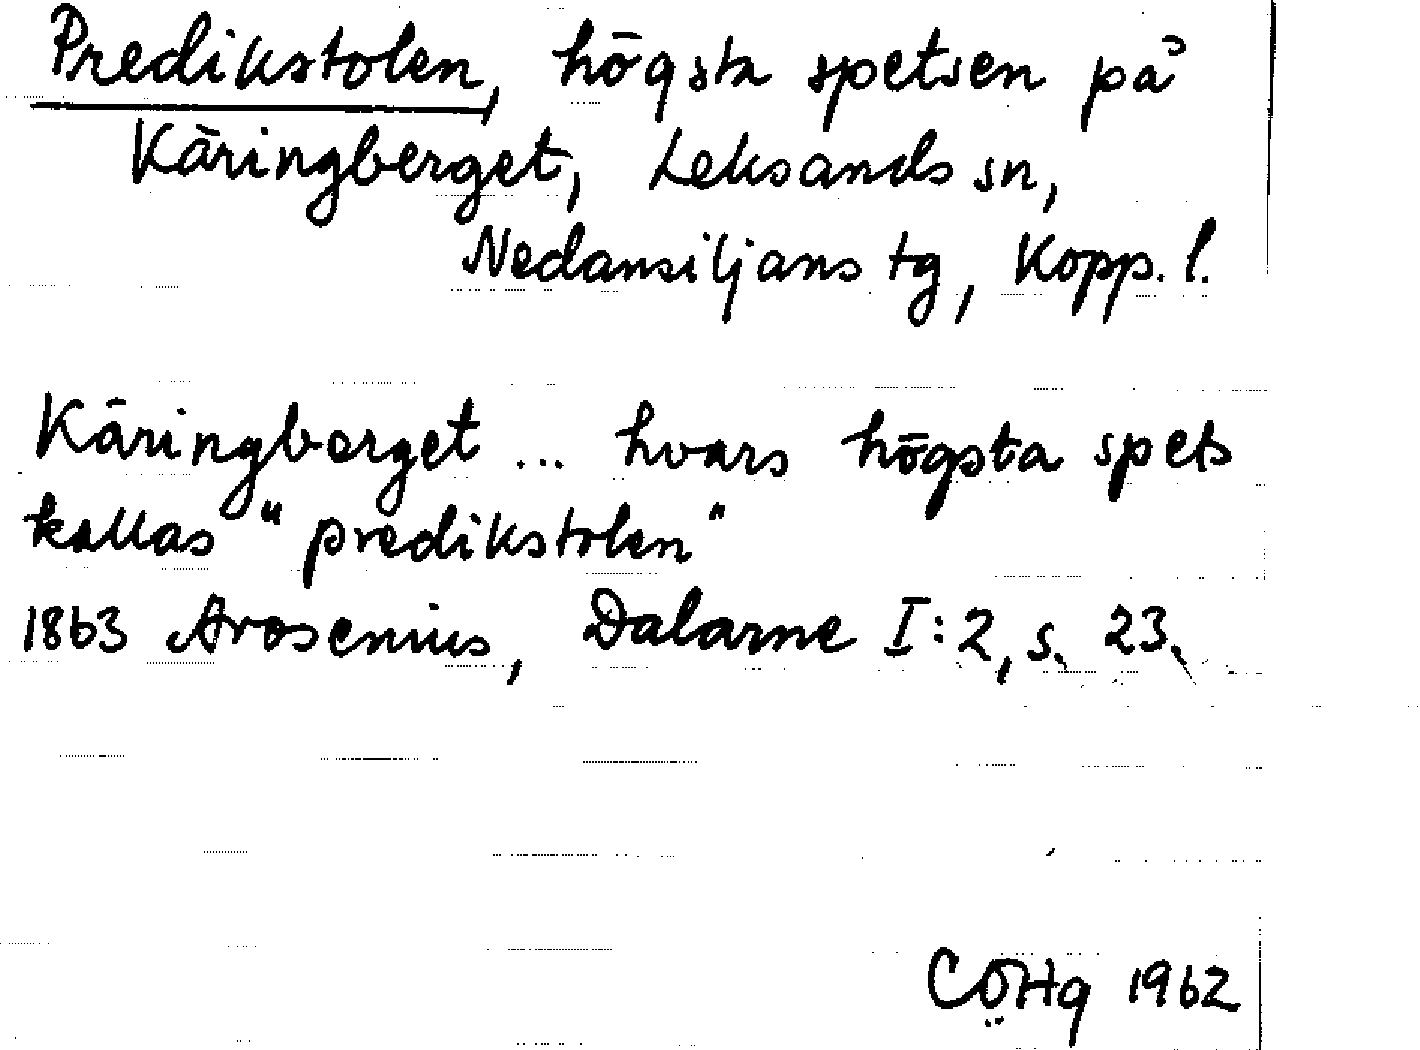 Predikstolen, högsta spetsen på
Käringberget, Leksands sn,
Nedansiljans tg, Kopp. l.
Käringberget ... hvars högsta spets
kallas "predikstolen"
1863 Arosenius, Dalarne I:2, s. 23.
CÖHg 1962